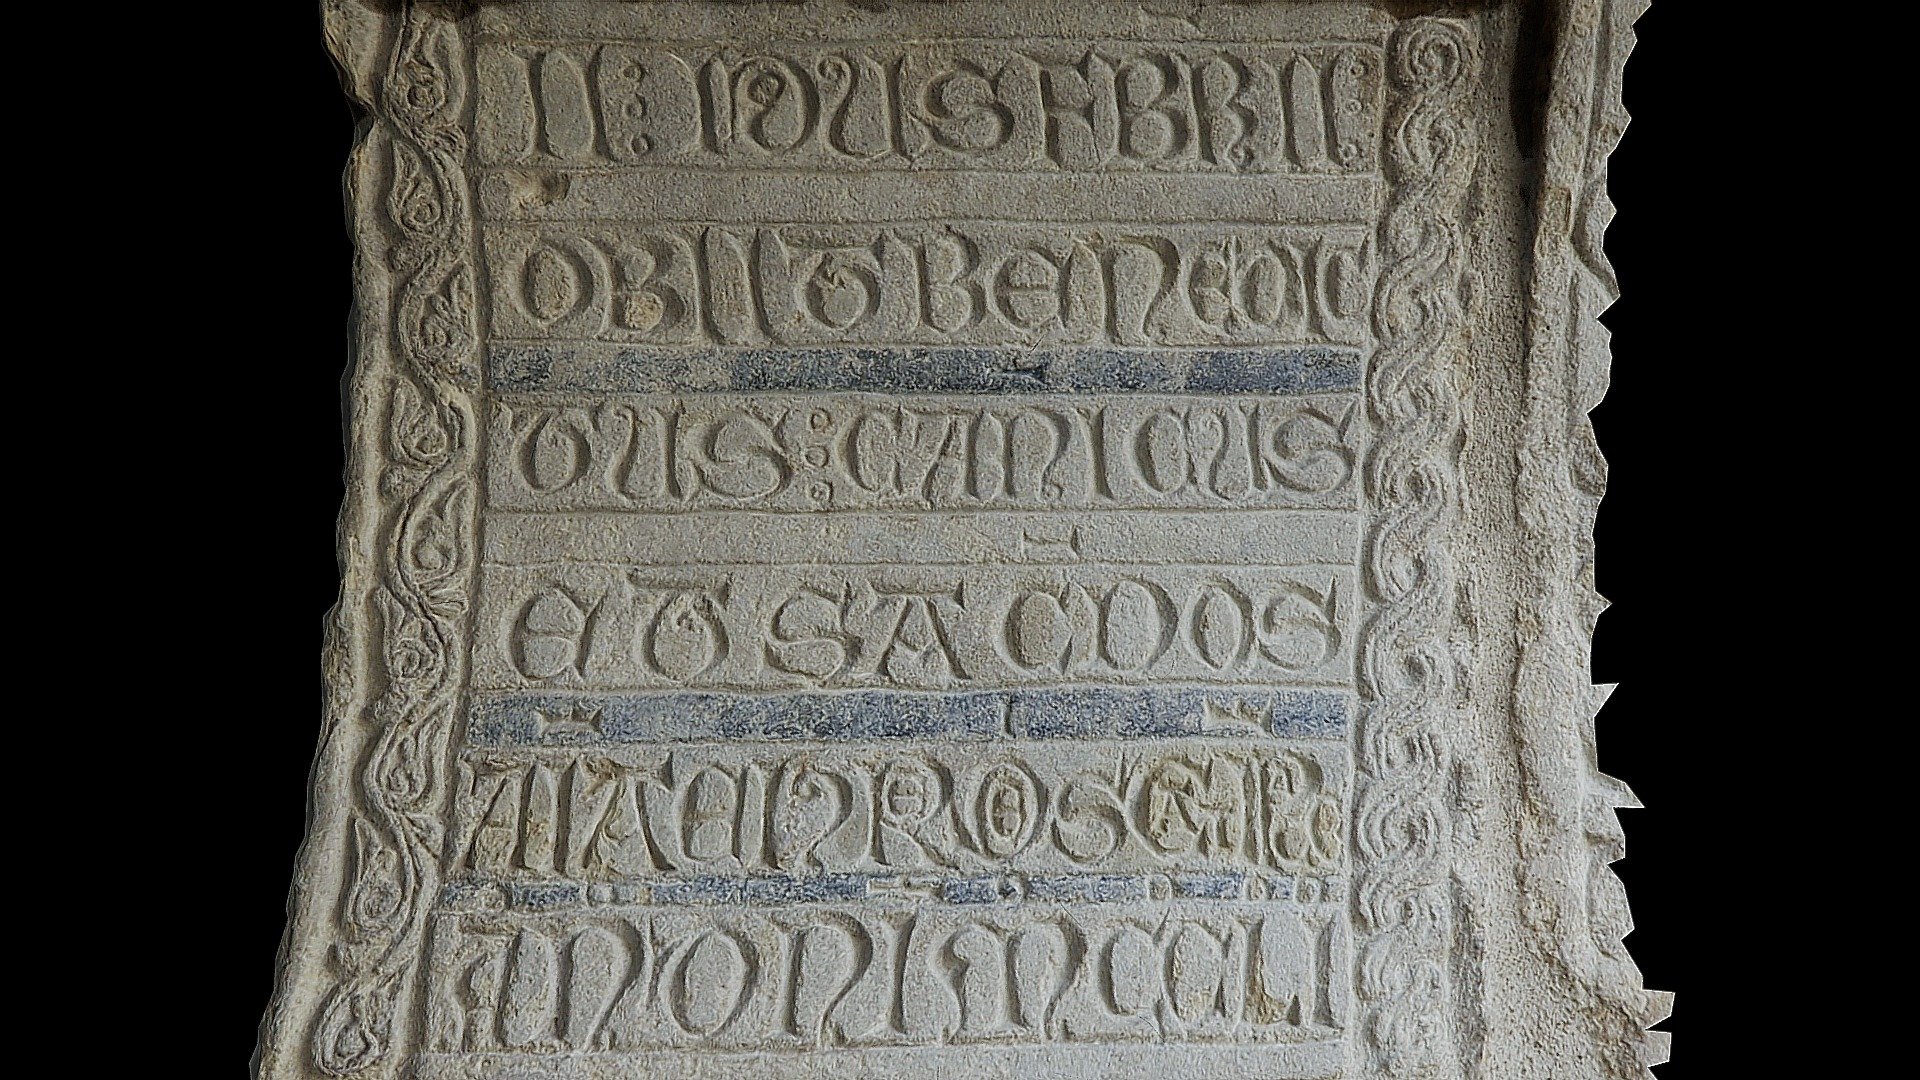 II : IDUS FBRII :
OBIIT BENEDIC
TUS : CANICUS
ET SACDOS
ANO NI MCCLI